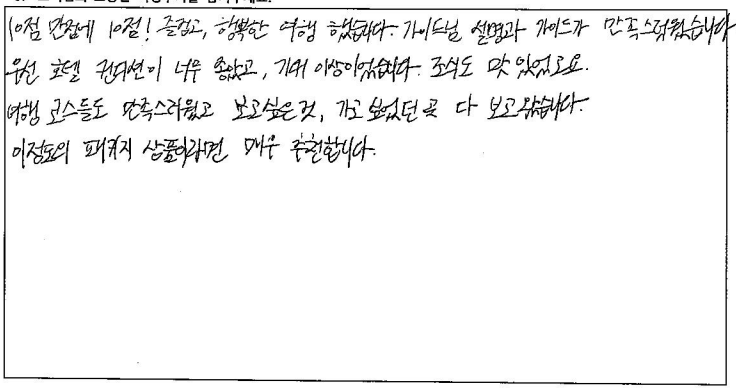 10점 만점에 10점! 즐겁고, 행복한 여행 했습니다. 가이드님 설명과 가이드가 만족스러웠습니다
우선 호텔 컨디션이 너무 좋았고, 기대 이상이었습니다. 조식도 맛있었고요.
여행 코스들도 만족스러웠고 보고싶은 것, 가고 싶었던 곳 다 보고왔습니다.
이정도의 패키지 상품이라면 매우 추천합니다.